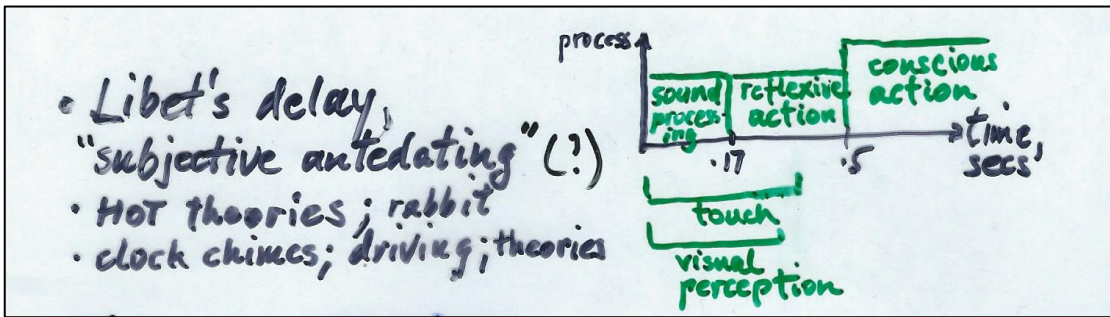 • Libet's delay,
"subjective antedating" (?)
• HOT theories; rabbit
• clock chimes; driving; theories
process
sound
process-
ing
reflexive
action
conscious
action
.17
.5
time,
secs
touch
visual
perception